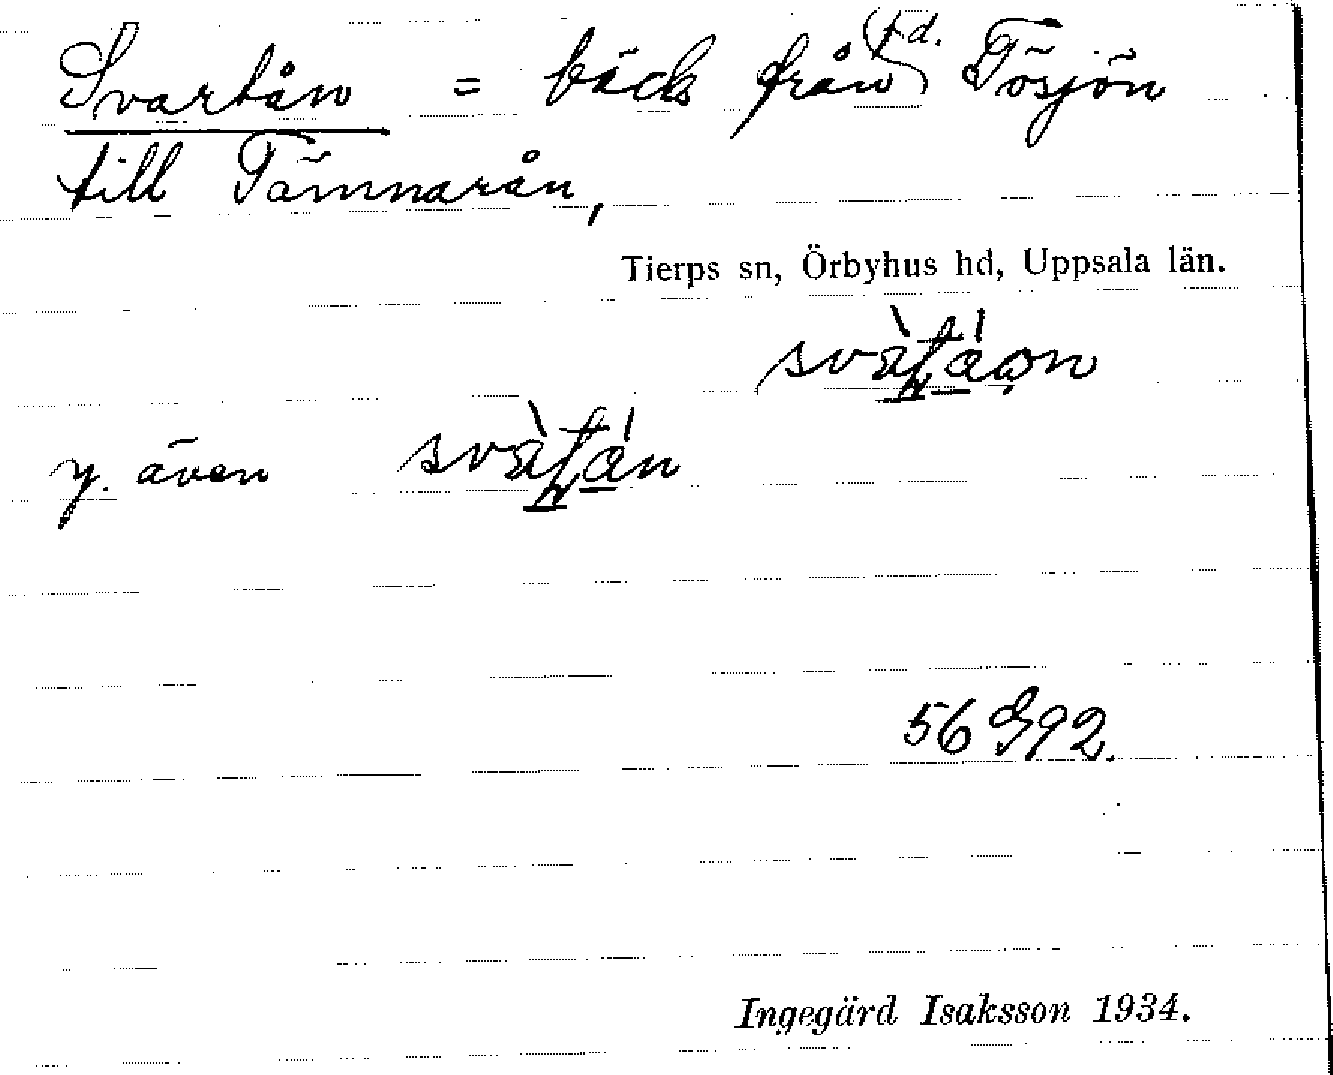 Svartån = bäck från (f.d.) Tösjön
till Tämnarån,
Tierps sn, Örbyhus hd, Uppsala län.
y. även
56 G 92.
Ingegärd Isaksson 1934.